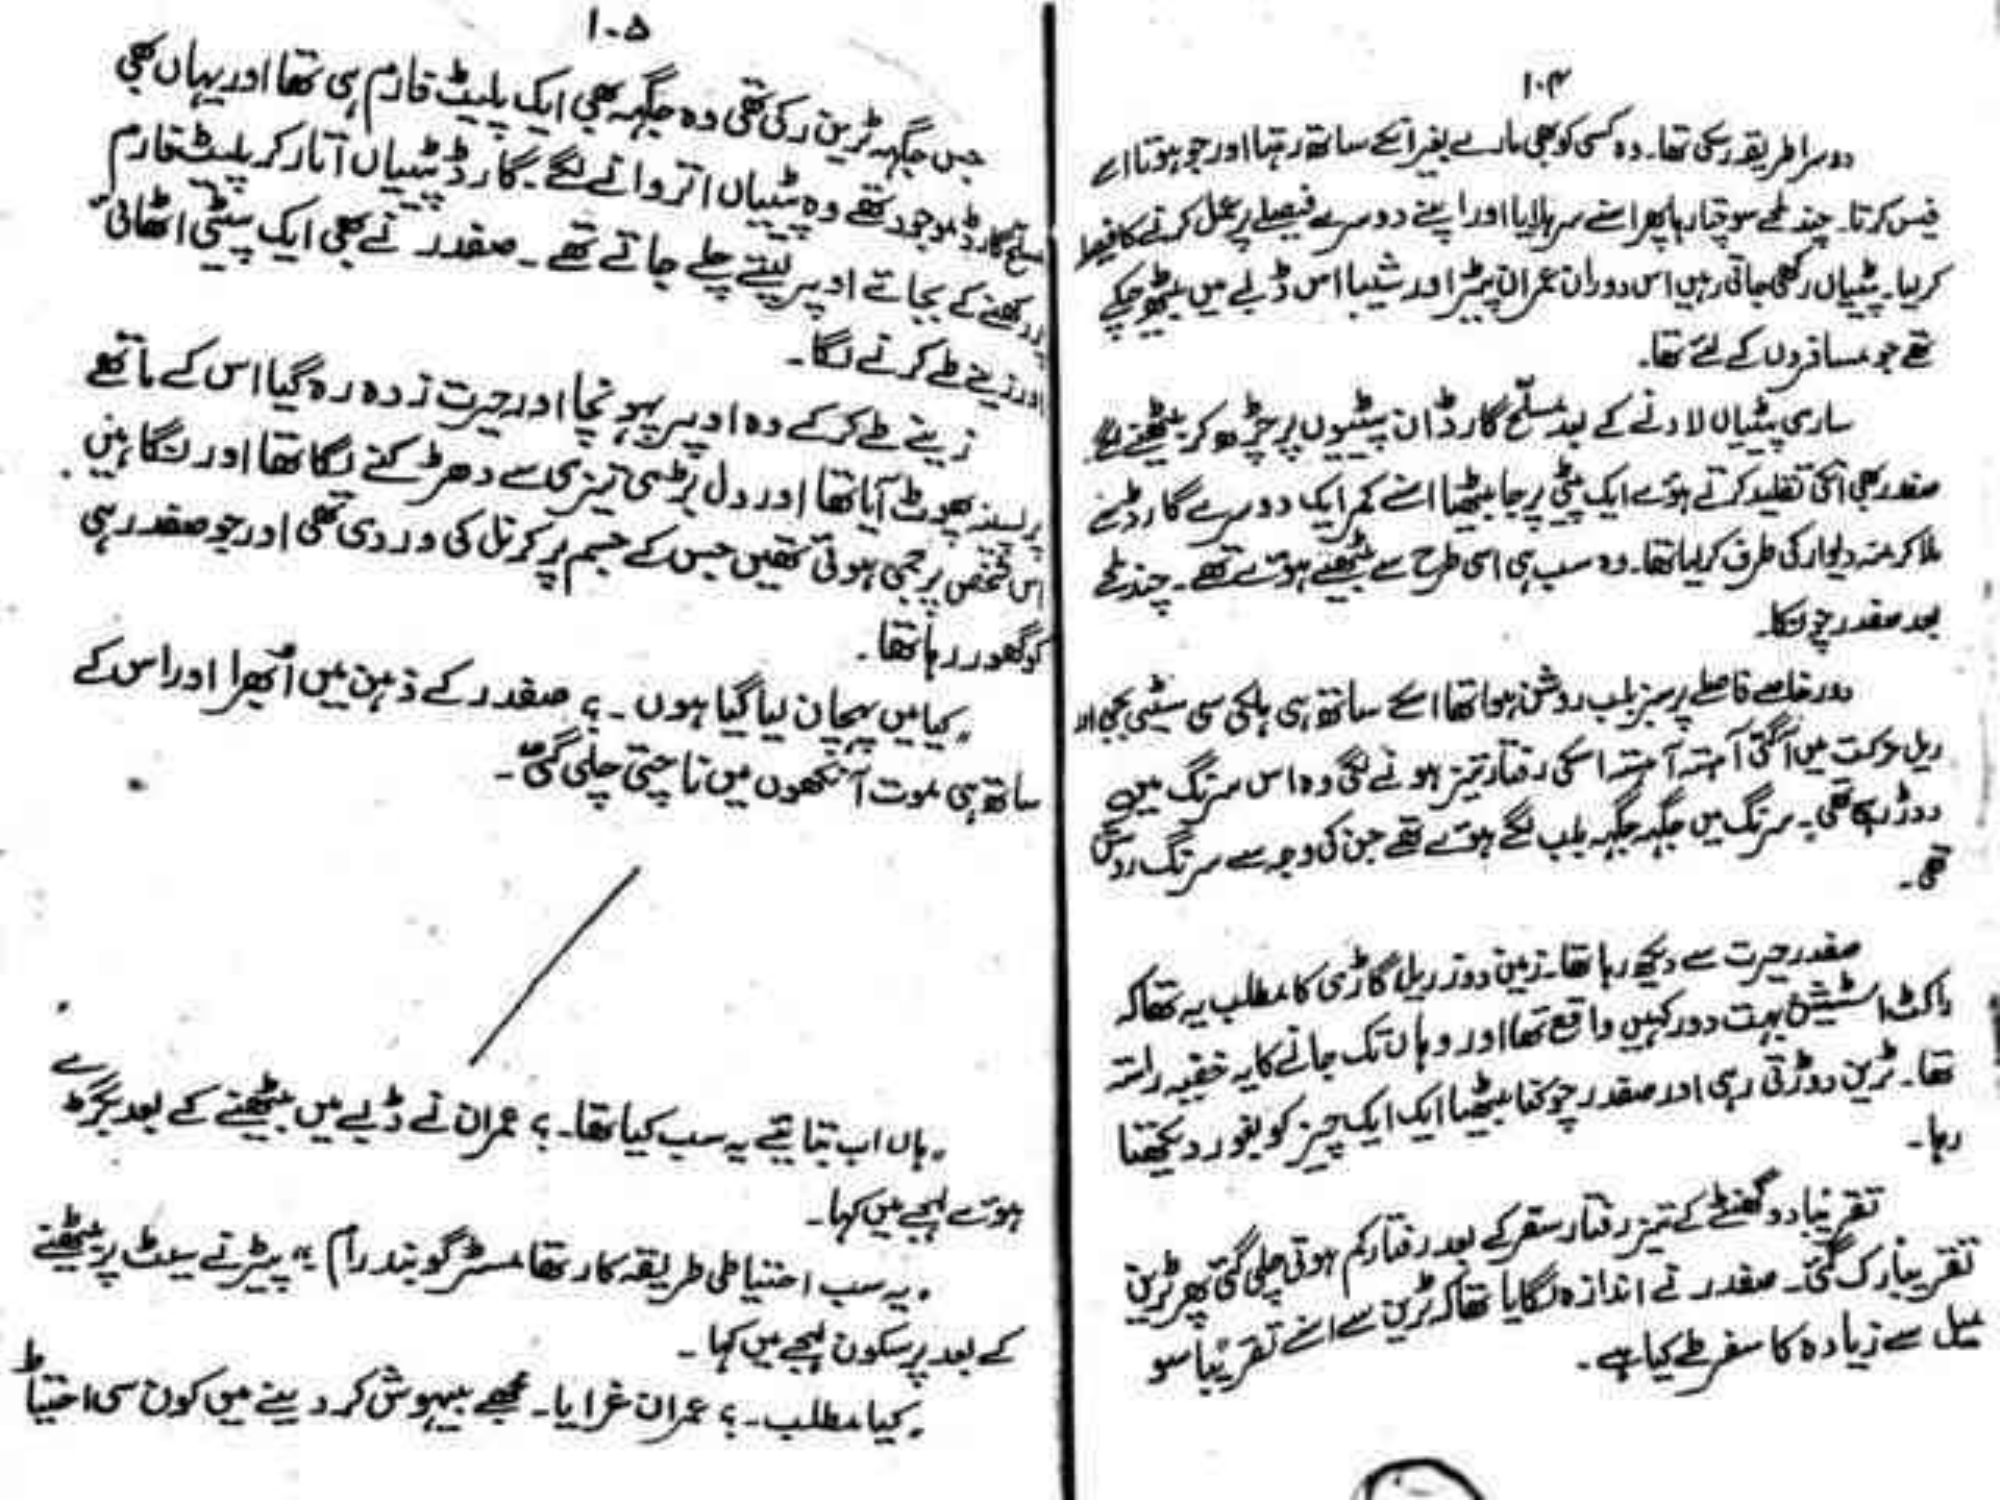 ۱۰۴
دوسرا طریقہ رسکی تھا۔ وہ کسی کو بھی مارے بغیر انکے ساتھ رہتا اور جو ہوتا اسے
فیس کرتا۔ چند لمحے سوچتا رہا پھر اسنے سر ہلایا اور اپنے دوسرے فیصلے پر عمل کرنے کا فیصلہ
کر لیا۔ پیٹیاں رکھی جاتی رہیں اس دوران عمران پیٹر اور شیبا اس ڈبے میں بیٹھ چکے
تھے جو مسافروں کے لئے تھا۔
ساری پیٹیاں لادنے کے بعد مسلّح گارڈ ان پیٹیوں پر چڑھ کر بیٹھنے لگے
صفدر بھی انکی تقلید کرتے ہوئے ایک پیٹی پر جا بیٹھا اسنے کمر ایک دوسرے گارڈ سے
ملا کر منہ دیوار کی طرف کر لیا تھا۔ وہ سب ہی اسی طرح سے بیٹھے ہوئے تھے۔ چند لمحے
بعد صفدر چونکا۔
دور خاصے فاصلے پر سبز بلب روشن ہوا تھا اسکے ساتھ ہی ہلکی سی سیٹی بجی اور
ریل حرکت میں آگئی آہستہ آہستہ اسکی رفتار تیز ہونے لگی وہ اس سرنگ میں
دوڑ رہی تھی۔ سرنگ میں جگہ جگہ بلب لگے ہوئے تھے جن کی وجہ سے سرنگ روشن
تھی۔
صفدر حیرت سے دیکھ رہا تھا۔ زمین دوز ریل گاڑی کا مطلب یہ تھا کہ
راکٹ اسٹیشن بہت دور کہیں واقع تھا اور وہاں تک جانے کا یہ خفیہ راستہ
تھا۔ ٹرین دوڑتی رہی اور صفدر چوکنا بیٹھا ایک ایک چیز کو بغور دیکھتا
رہا۔
تقریباً دو گھنٹے کے تیز رفتار سفر کے بعد رفتار کم ہوتی چلی گئی پھر ٹرین
تقریباً رک گئی۔ صفدر نے اندازہ لگایا تھا کہ ٹرین سے اسنے تقریباً سو
میل سے زیادہ کا سفر طے کیا ہے۔
۱۰۵
جس جگہہ ٹرین رکی تھی وہ جگہہ بھی ایک پلیٹ فارم ہی تھا اور یہاں بھی
مسلح گارڈ موجود تھے وہ پیٹیاں اتروانے لگے۔ گارڈ پیٹیاں اتار کر پلیٹ فارم
پر رکھنے کے بجائے اوپر لیتے چلے جاتے تھے۔ صفدر نے بھی ایک پیٹی اٹھائی
اور زینے طے کرنے لگا۔
زینے طے کر کے وہ اوپر پہونچا اور حیرت زدہ رہ گیا اس کے ماتھے
پر پسینہ پھوٹ آیا تھا اور دل بڑی تیزی سے دھڑکنے لگا تھا اور نگاہیں
اس شخص پر جمی ہوئی تھیں جس کے جسم پر کرنل کی وردی تھی اور جو صفدر ہی
کو گھور رہا تھا۔
"کیا میں پہچان لیا گیا ہوں۔؟ صفدر کے ذہن میں اُبھرا اور اس کے
ساتھ ہی موت آنکھوں میں ناچتی چلی گئی۔
"ہاں اب بتائیے یہ سب کیا تھا۔؟ عمران نے ڈبے میں بیٹھنے کے بعد بگڑے
ہوئے لہجے میں کہا۔
"یہ سب احتیاطی طریقہ کار تھا مسٹر گوبند رام" پیٹر نے سیٹ پر بیٹھنے
کے بعد پرسکون لہجے میں کہا۔
"کیا مطلب۔؟ عمران غرایا۔ مجھے بیہوش کر دینے میں کون سی احتیاط